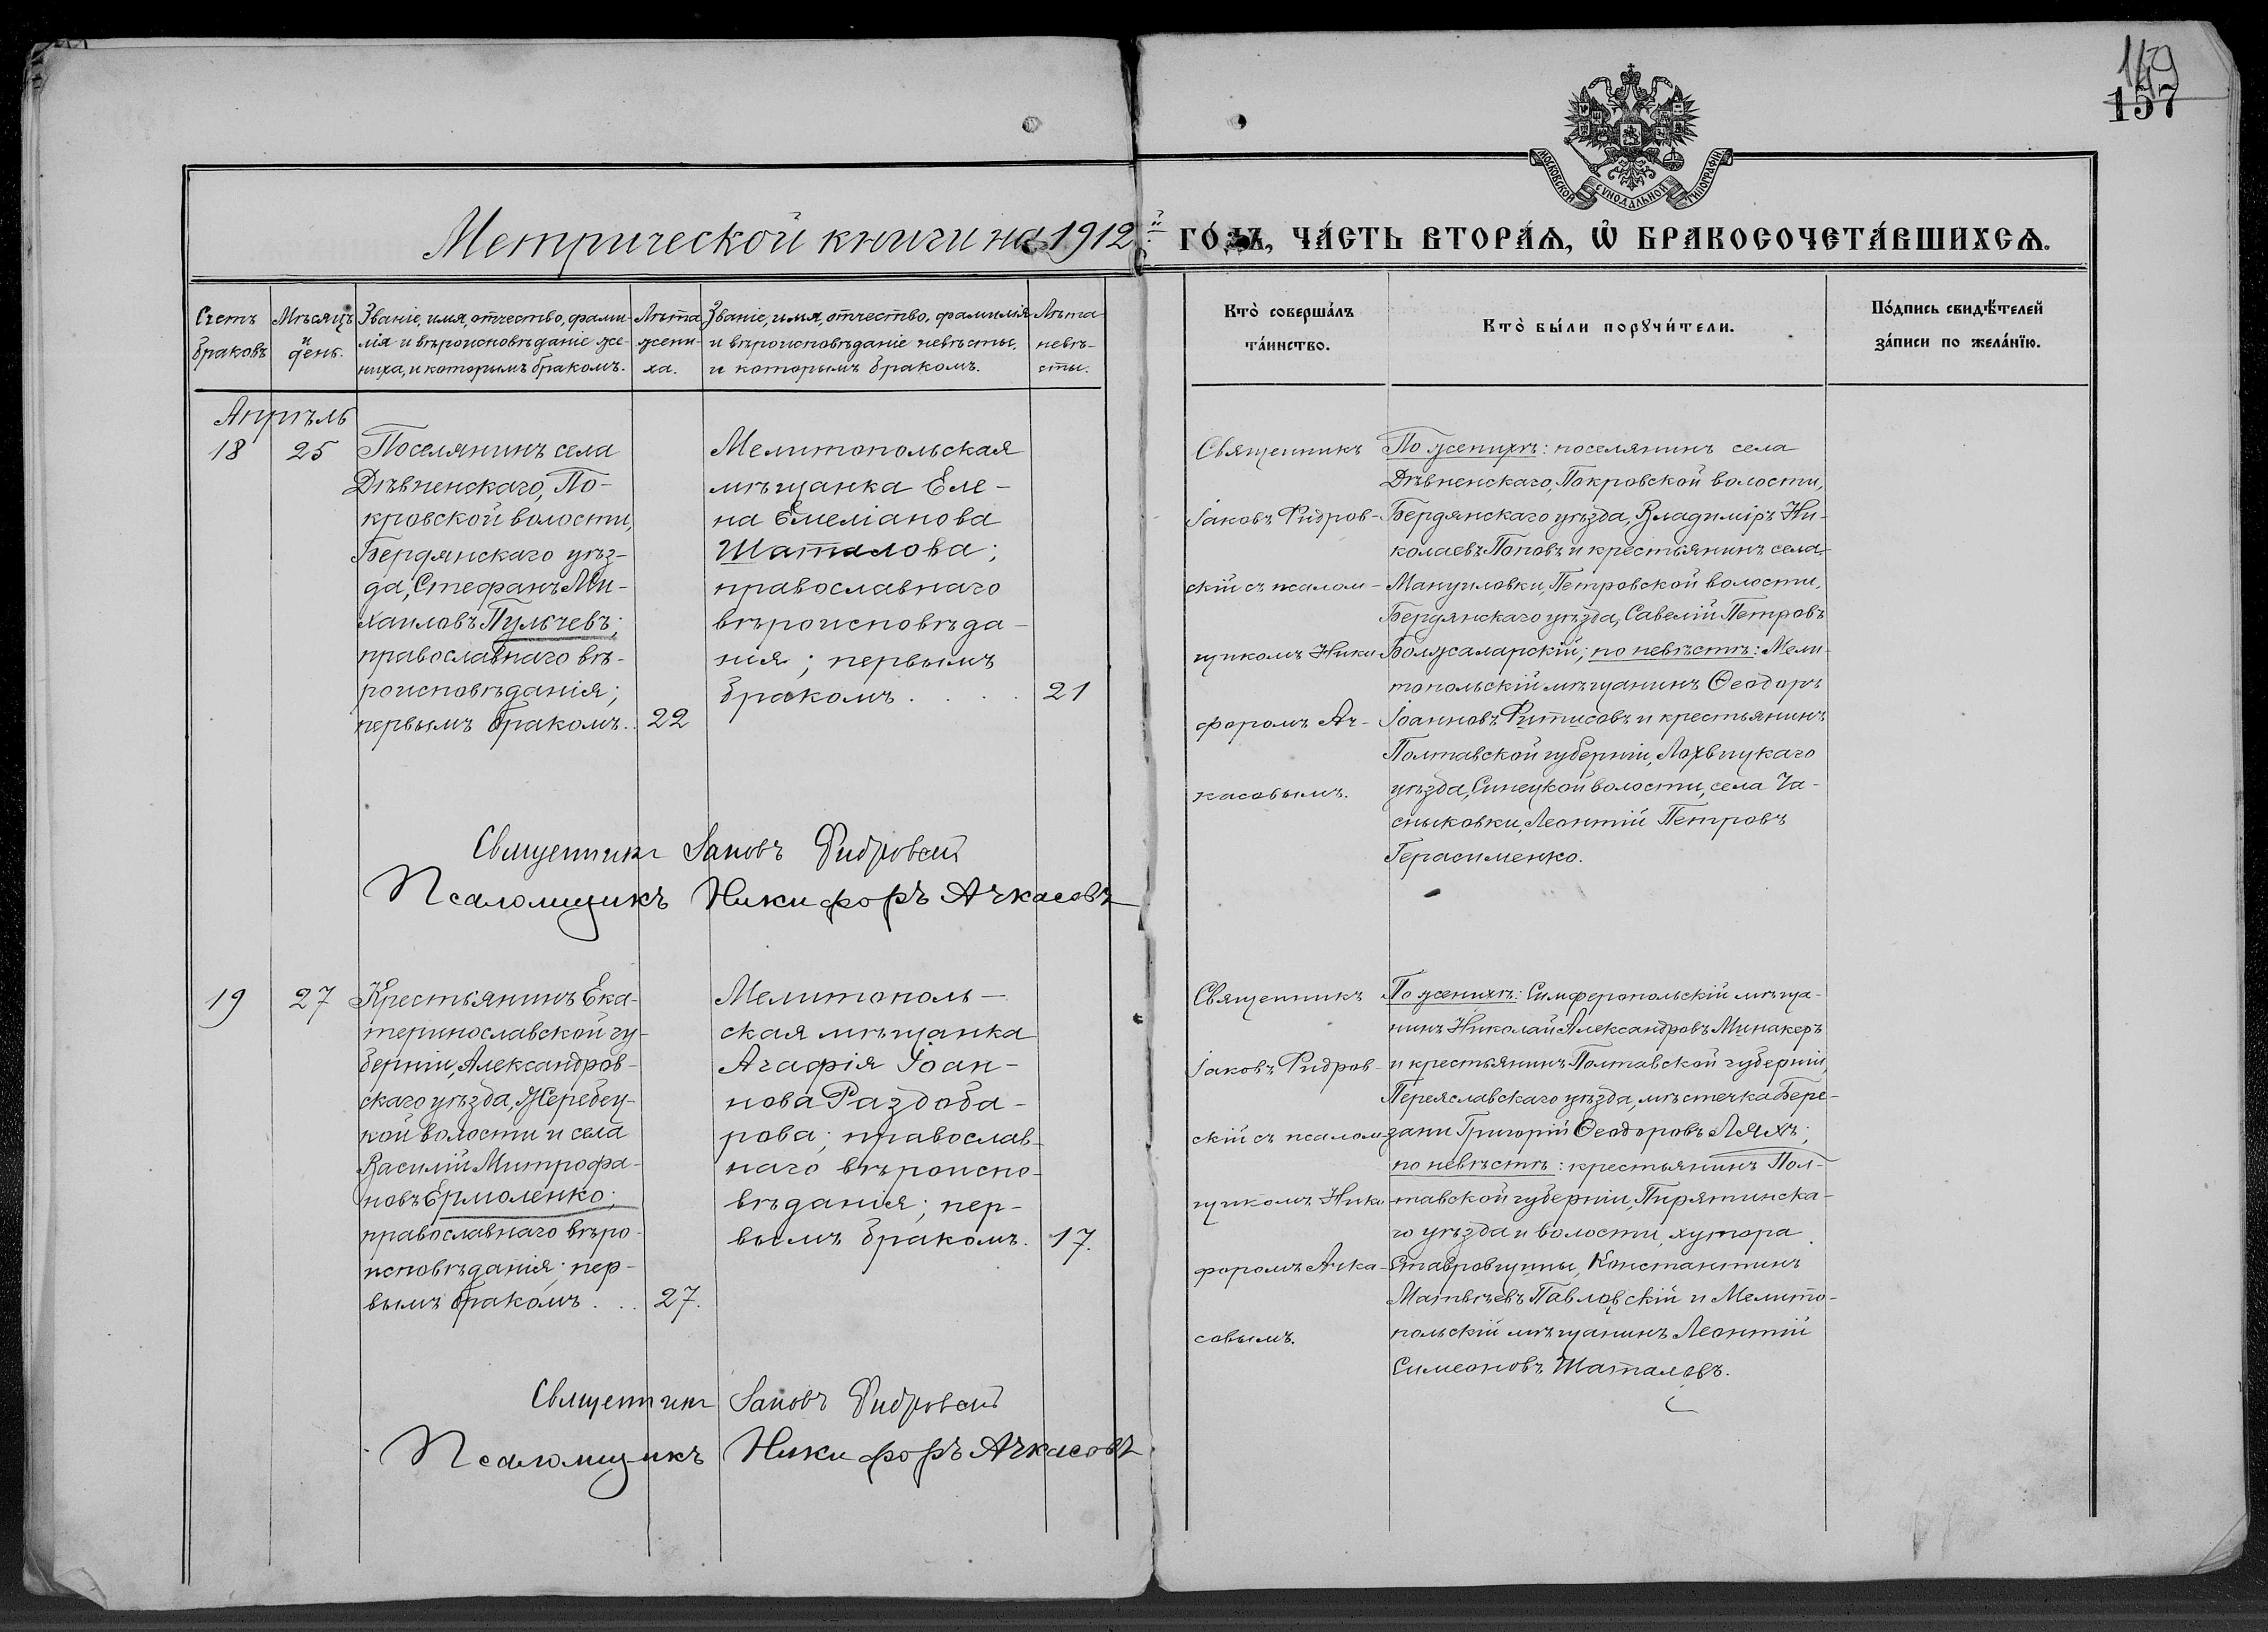 149
157
МОСКОВСКОЙ СѴНОДАЛЬНОЙ ТИПОГРАФІИ
Метрической книги на 1912й го́дъ, ча́сть втора́ѧ, ѡ҆ бракосочета́вшихсѧ.
Счетъ браковъ
Мѣсяцъ и день.
Званіе, имя, отчество, фами-
лія и вѣроисповѣданіе же-
ниха, и которымъ бракомъ.
Лѣта жени-
ха.
Званіе, имя, отчество, фамилія
и вѣроисповѣданіе невѣсты,
и которымъ бракомъ.
Лѣта невѣ-
сты.
Кто̀ соверша́лъ
та́инство.
Кто̀ бы́ли порꙋчи́тели.
По́дпись свидѣ́телей
за́писи по жела́нїю.
Апрѣль
18
25
Поселянинъ села
Дѣвненскаго, По-
кровской волости,
Бердянскаго уѣз-
да, Стефанъ Ми-
хаиловъ Пульчевъ;
православнаго вѣ-
роисповѣданія;
первымъ бракомъ..
22
Мелитопольская
мѣщанка Еле-
на Емеліанова
Шаталова;
православнаго
вѣроисповѣда-
нія; первымъ
бракомъ . . .
21
Священникъ
Іаковъ Фидров-
скій съ псалом-
щикомъ Ники-
форомъ Ач-
касовымъ.
По женихѣ: поселянинъ села
Дѣвненскаго, Покровской волости,
Бердянскаго уѣзда, Владиміръ Ни-
колаевъ Поповъ и крестьянинъ села
Мануиловки, Петровской волости,
Бердянскаго уѣзда, Савелій Петровъ
Болжаларскій; по невѣстѣ: Мели-
топольскій мѣщанинъ Ѳеодоръ
Іоанновъ Фитисовъ и крестьянинъ
Полтавской губерніи, Лохвицкаго
уѣзда, Синецкой волости, села Ча-
сныковки, Леонтій Петровъ
Герасименко.
Священникъ Іаковъ Фидровскій
Псаломщикъ Никифоръ Ачкасовъ
19
27
Крестьянинъ Ека-
теринославской гу-
берніи, Александров-
скаго уѣзда, Жеребец-
кой волости и села
Василій Митрофа-
новъ Ермоленко;
православнаго вѣро-
исповѣданія; пер-
вымъ бракомъ . . .
27.
Мелитополь-
ская мѣщанка
Агафія Іоан-
нова Раздоба-
рова; православ-
наго вѣроиспо-
вѣданія; пер-
вымъ бракомъ.
17.
Священникъ
Іаковъ Фидров-
скій съ псалом-
щикомъ Ники-
форомъ Ачка-
совымъ.
По женихѣ: Симферопольскій мѣща-
нинъ Николай Александровъ Минакеръ
и крестьянинъ Полтавской губерніи,
Переяславскаго уѣзда, мѣстечка Бере-
зани Григорій Ѳеодоровъ Ляхъ;
по невѣстѣ: крестьянинъ Пол-
тавской губерніи, Пирятинска-
го уѣзда и волости, хутора
Ставровщины, Константинъ
Матвѣевъ Павловскій и Мелито-
польскій мѣщанинъ Леонтій
Симеоновъ Шаталовъ.
Священникъ Іаковъ Фидровскій
Псаломщикъ Никифоръ Ачкасовъ